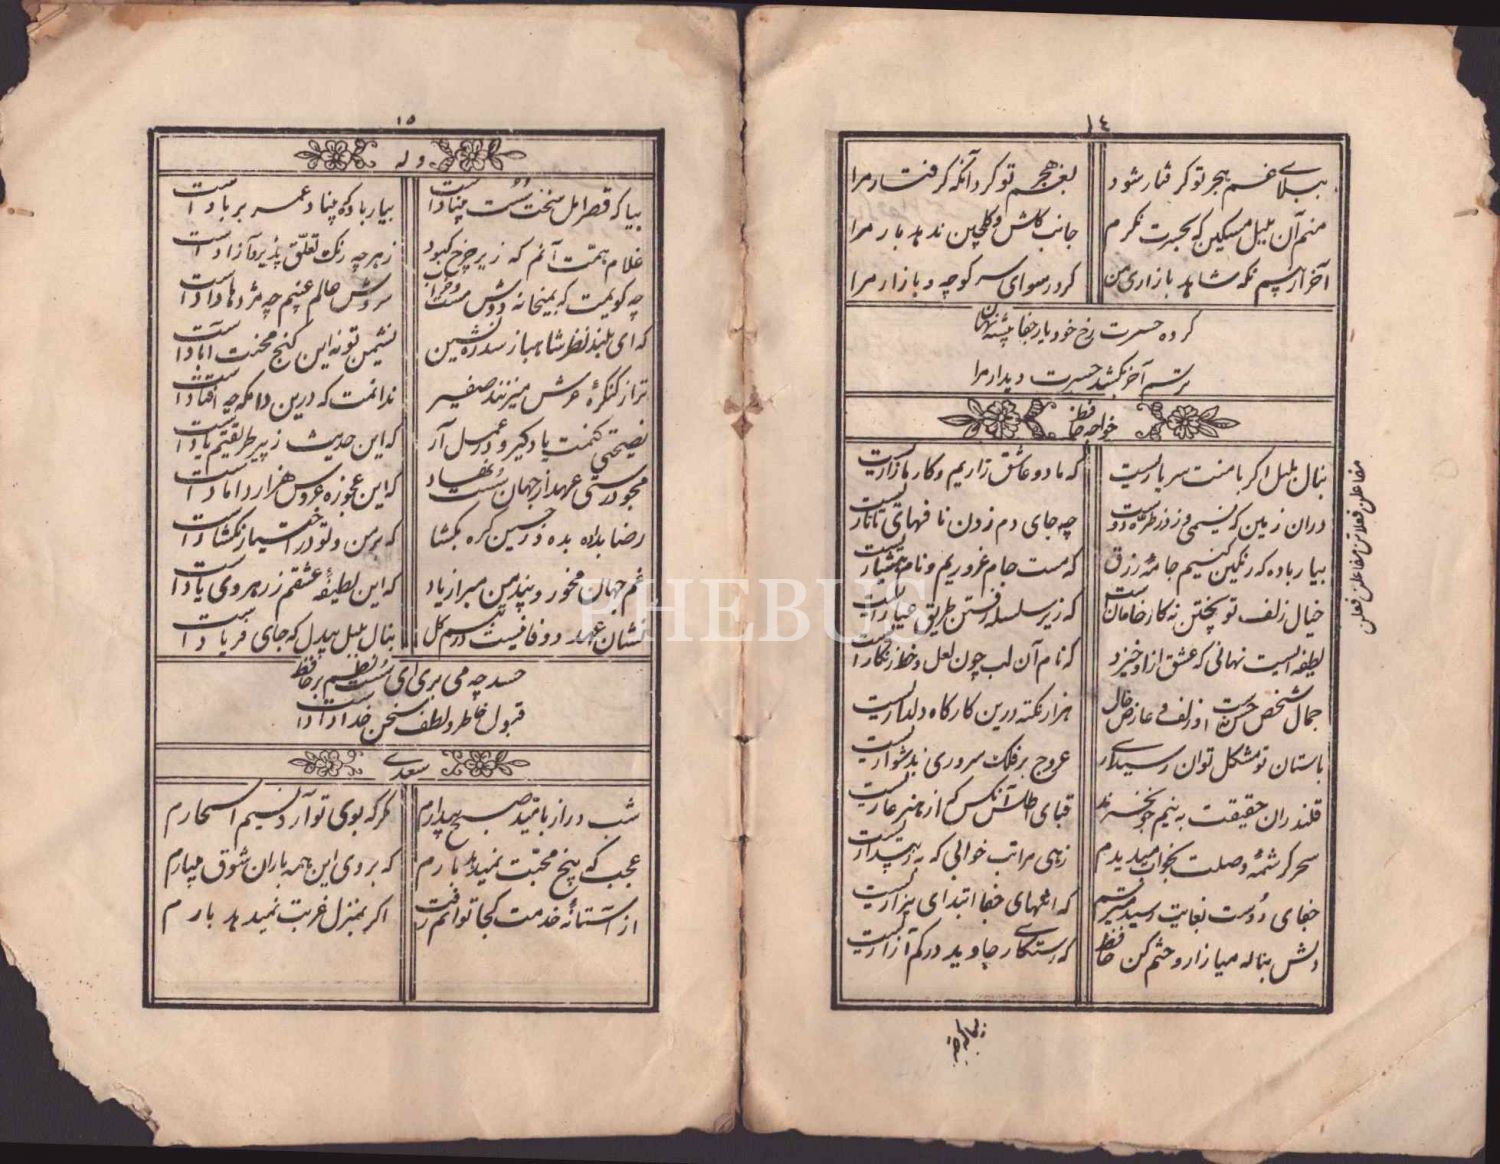 ١٤
ببلای غم هجر تو گرفتار شود	بغم هجم تو کرد آنکه گرفتار مرا
منم آن بلبل مسکین که بحسرت نگرم	جانب گلشن و گلچین ندهد بار مرا
آخر از چشم نگه شاهد بازاری من	کرد رسوای سر کوچه و بازار مرا
کرده حسرت رخ خود یار جفا پیشه نهان
ترسم آخر بکشد حسرت دیدار مرا
خواجه حافظ
بنال بلبل اگر با منت سر یاریست	که ما دو عاشق زاریم و کار ما زاریست
دران زمین که نسیمی وزد ز طره دوست	چه جای دم زدن نافهای تاتاریست
بیار باده که رنگین کنیم جامه زرق	که مست جام غروریم و نام هشیاریست
خیال زلف تو پختن نه کار خامانست	که زیر سلسله رفتن طریق عیاریست
لطیفه ایست نهانی که عشق ازو خیزد	که نام آن لب چون لعل و خط زنگاریست
جمال شخص نه چشمست و زلف و عارض و خال	هزار نکته درین کار کاه دلداریست
باستان تو مشکل توان رسید آری	عروج بر فلک سروری بدشواریست
قلندران حقیقت به نیم جو نخرند	قبای اطلس آنکس که از هنر عاریست
سحر کرشمه وصلت بخواب میدیدم	زهی مراتب خوابی که به ز بیداریست
جفای دوست نغایت رسید میترسم	که انتهای جفا ابتدای بیزاریست
دلش بناله میازار و ختم کن حافظ	که رستگاری جاوید در کم آزاریست
مفاعلن فعلاتن مفاعلن فعلن
بیا که قصر
١٥
وله
بیا که قصر امل سخت سست بنیادست	بیار باده که بنیاد عمر بر بادست
غلام همت آنم که زیر چرخ کبود	ز هر چه رنگ تعلق پذیرد آزادست
چه گویمت که بمیخانه دوش مست و خراب	سروش عالم غیبم چه مژدها دادست
که ای بلند نظر شاهباز سدره نشین	نشیمن تو نه این کنج محنت آبادست
ترا ز کنگرهٔ عرش میزنند صفیر	ندانمت که درین دامگه چه افتادست
نصیحتی کنمت یاد گیر و در عمل آر	که این حدیث ز پیر طریقتم یادست
مجو درستی عهد از جهان سست نهاد	که این عجوزه عروس هزار دامادست
رضا بداده بده وز جبین گره بگشا	که بر من و تو در اختیار نگشادست
غم جهان مخور و پند من مبر از یاد	که این لطیفهٔ عشقم ز رهروی یادست
نشان عهد و وفا نیست در تبسم گل	بنال بلبل بیدل که جای فریادست
حسد چه می بری ای سست نظم بر حافظ
قبول خاطر و لطف سخن خدادادست
سعدی
شب دراز بامید صبح بیدارم	مگر که بوی تو آرد نسیم اسحارم
عجب که بیخ محبت نمیدهد بارم	که بر وی این همه باران شوق میبارم
از آستانهٔ خدمت کجا توانم رفت	اگر بمنزل غربت نمیدهد بارم
PHEBUS